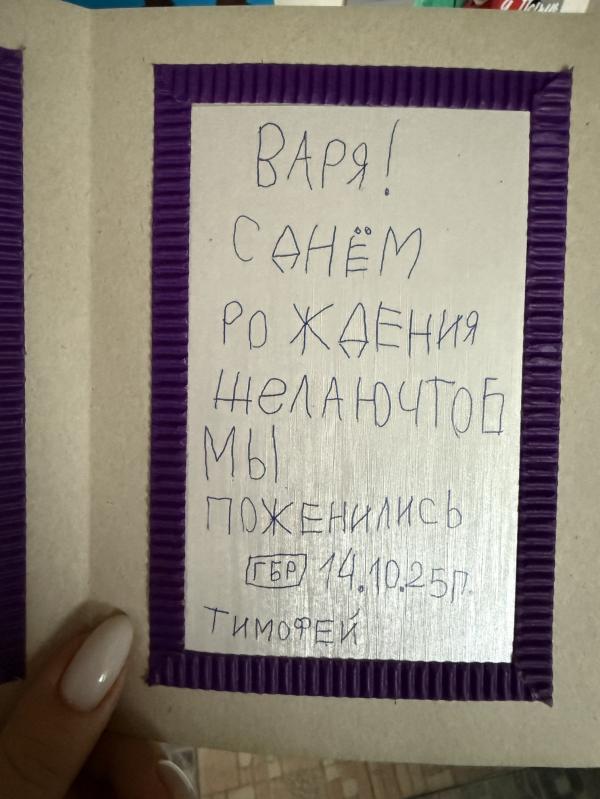 ВАРЯ!
С ДНЁМ
РОЖДЕНИЯ
ЖЕЛАЮ ЧТОБ
МЫ
ПОЖЕНИЛИСЬ
ГБР 14.10.25П.
ТИМОФЕЙ